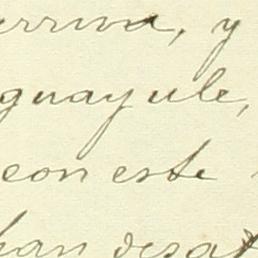 arriva, y
guayule,
con este
han desa